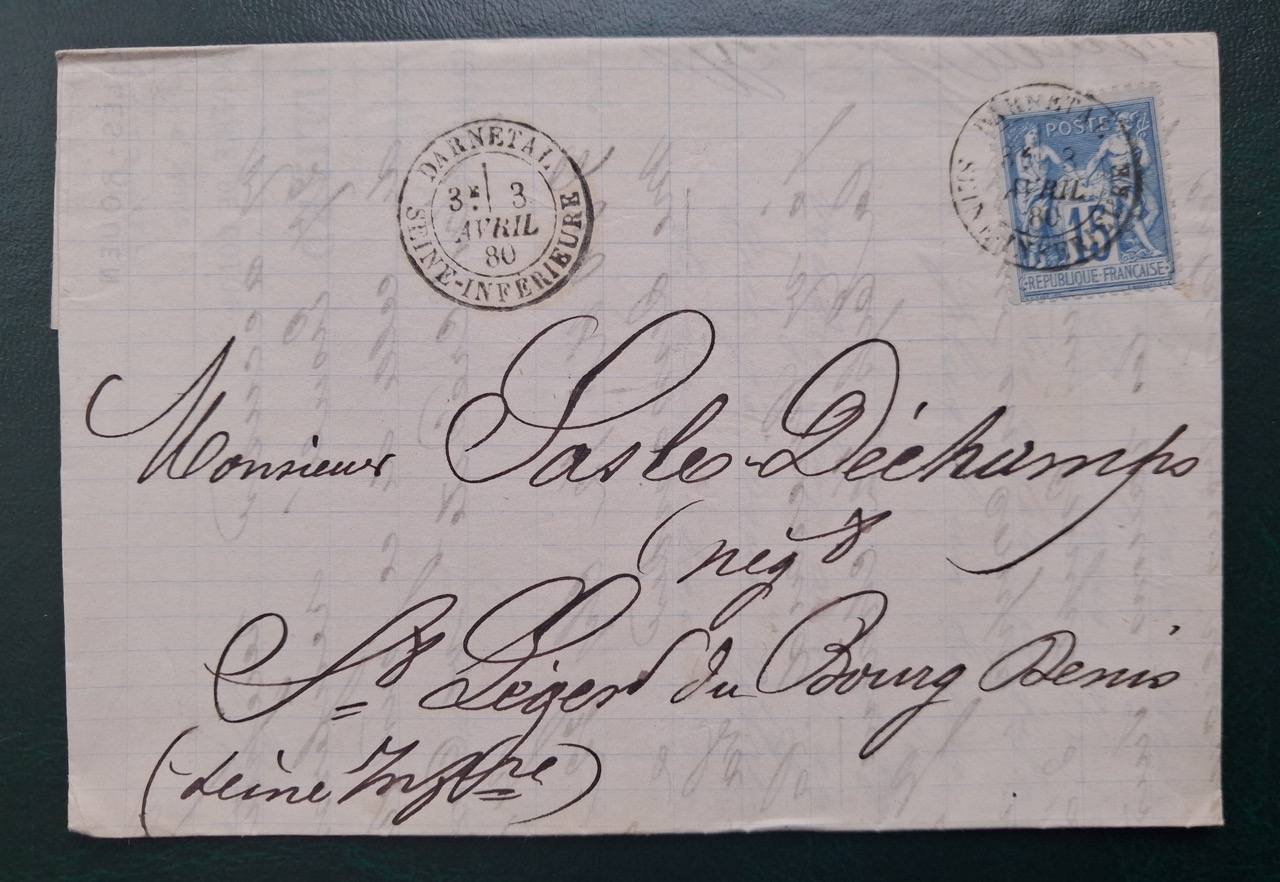 DARNETAL
3E 3
AVRIL
80
SEINE-INFERIEURE
DARNETAL
3
AVRIL
80
SEINE-INFERIEURE
POSTES
15
REPUBLIQUE FRANÇAISE
Monsieur Sasles-Déchamps
négt
St Léger du Bourg Denis
(Seine Infre)